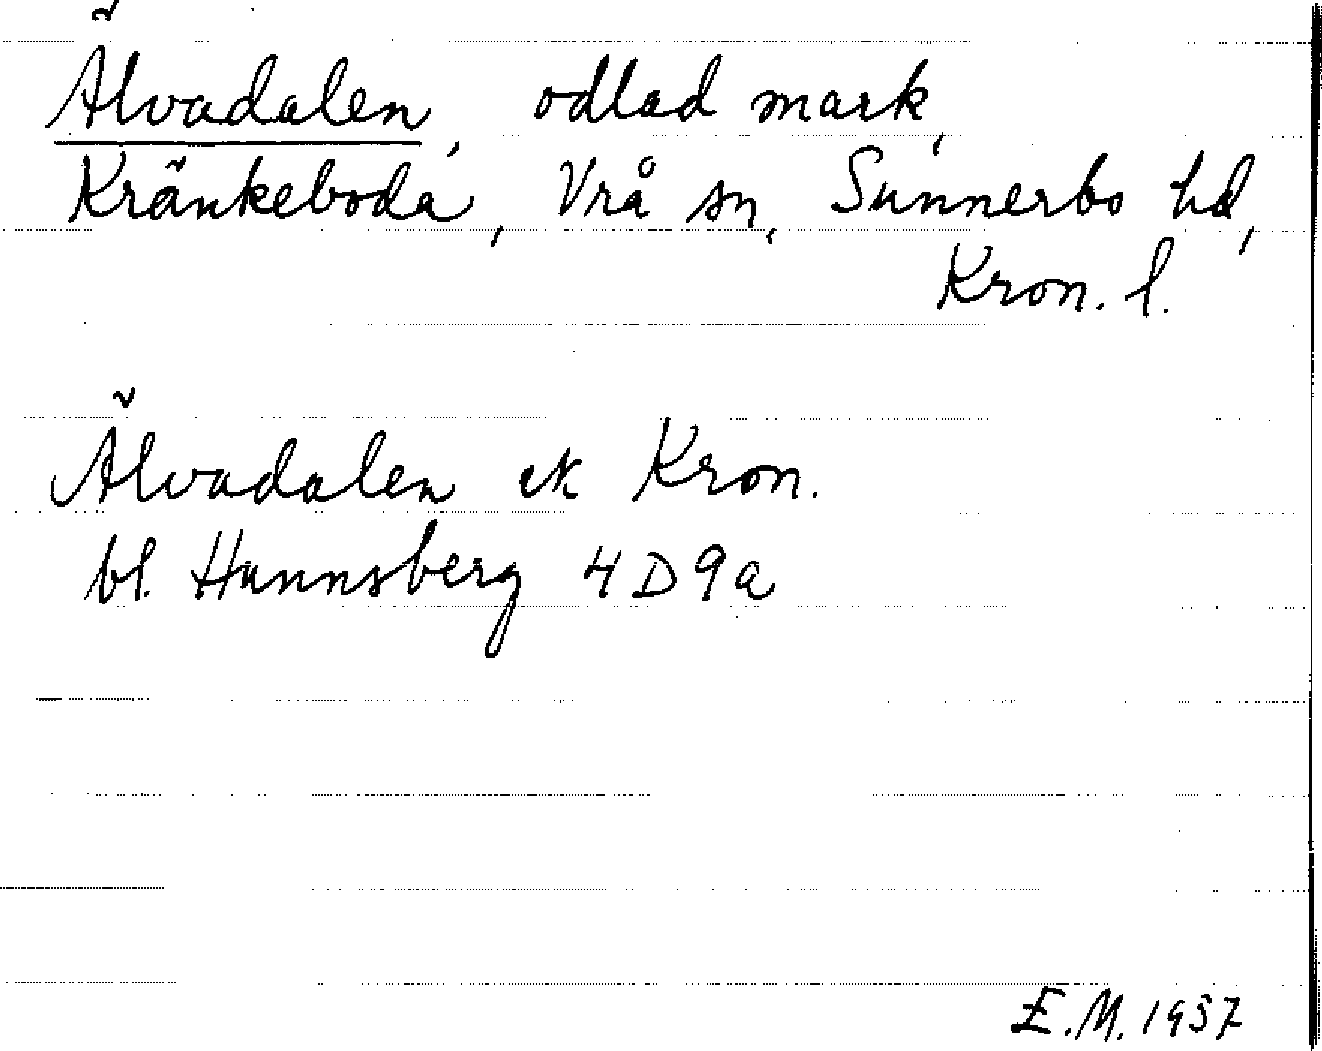 Älvadalen, odlad mark,
Kränkeboda, Vrå sn, Sunnerbo hd,
Kron. l.
Älvadalen ek Kron.
bl. Hannsberg 4D9a
E.M. 1957